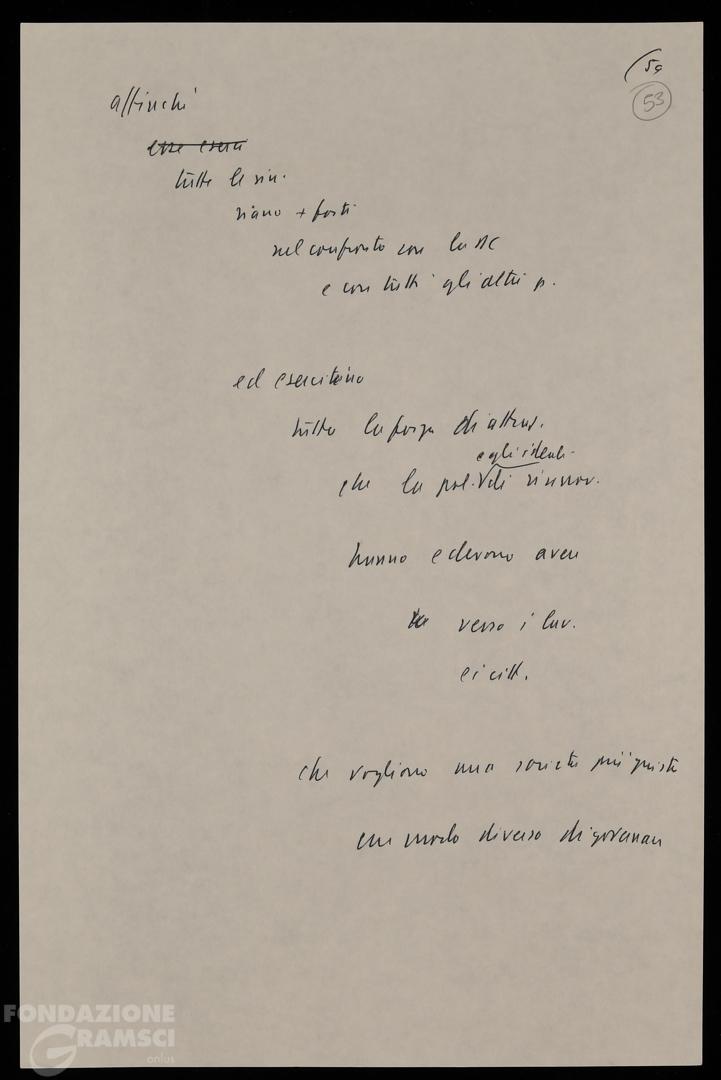 (59
53
affinché
esse eserci
tutte le sin.
siano + forti
nel confronto con la DC
e con tutti gli altri p.
ed esercitino
tutta la forza di attraz.
e gli ideali
che la pol. di rinnov.
hanno e devono avere
verso i lav.
e i citt.
che vogliono una società più giusta
e un modo diverso di governare
FONDAZIONE
GRAMSCI
onlus